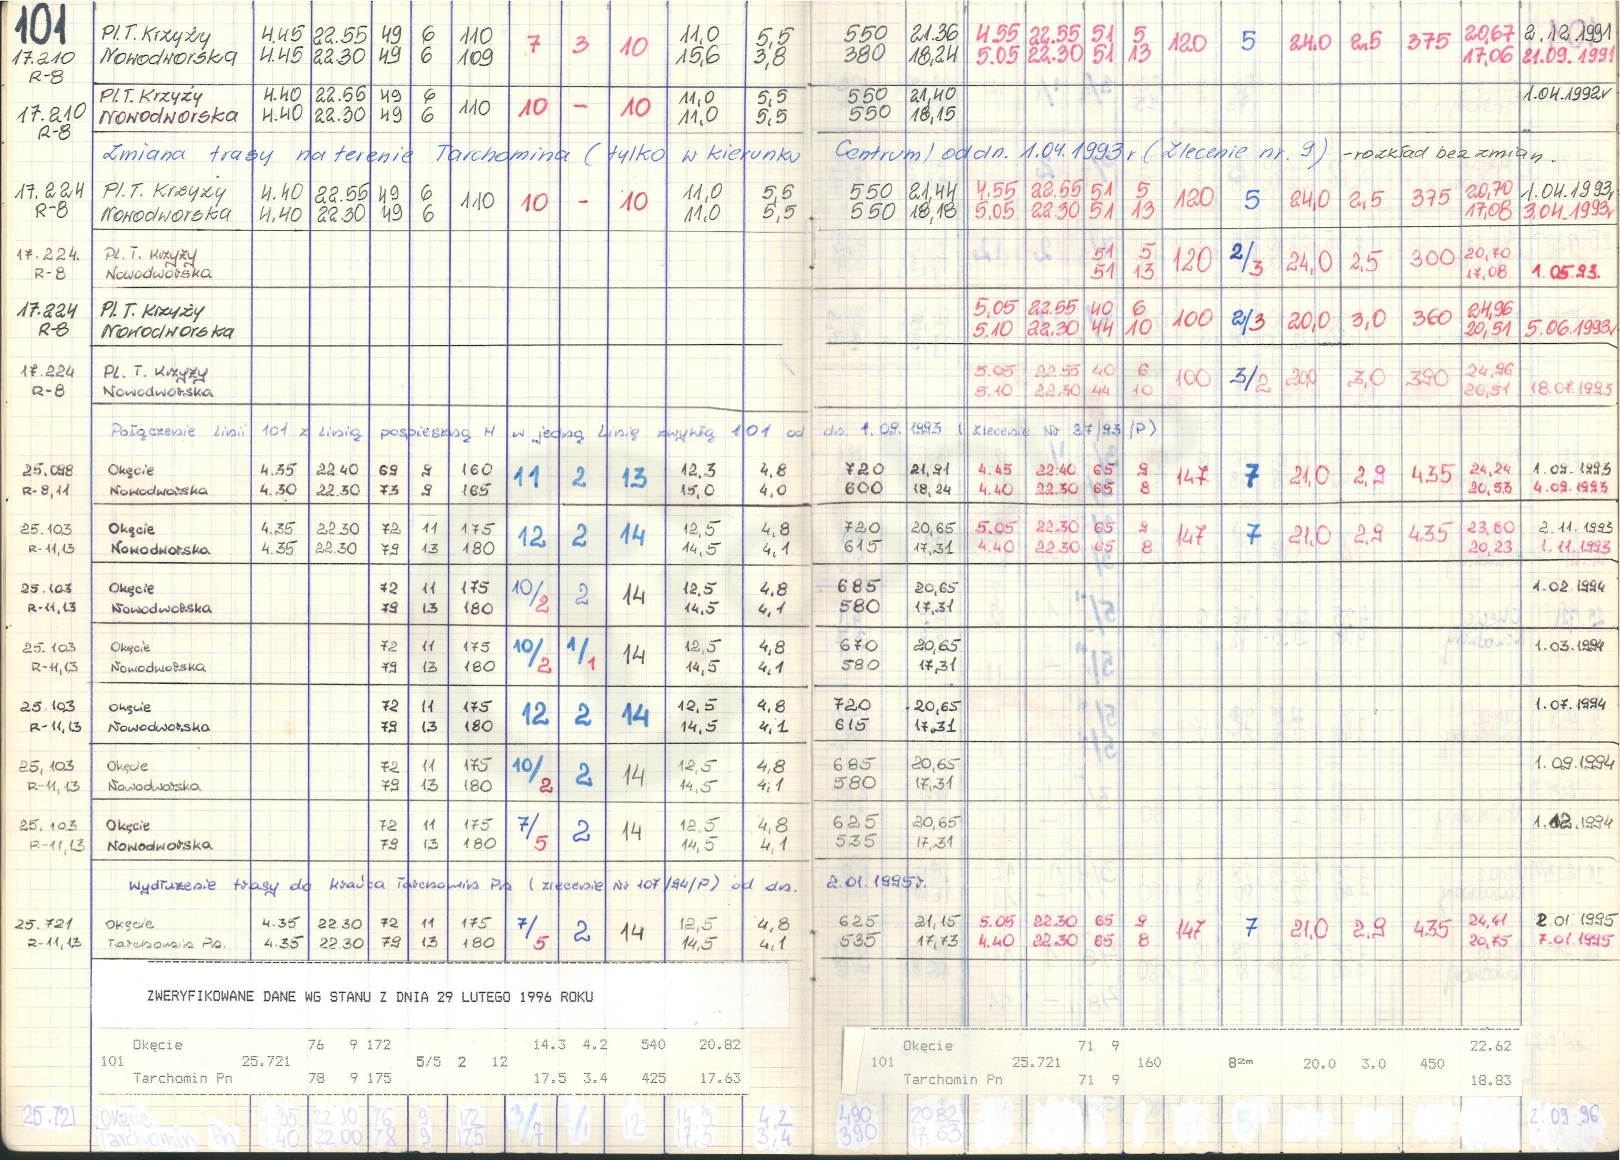 101 Pl. T. Krzyży 4.45 22.55 49 6 110 7 3 10 11,0 5,5 550 21.36 4.55 22.55 51 5 120 5 24.0 2.5 375 20,67 2.12.1991
17.210 Nowodworska 4.45 22.30 49 6 109 15,6 3,8 380 18,24 5.05 22.30 51 13 17,06 21.09.1991
R-8
Pl. T. Krzyży 4.40 22.55 49 6 110 10 - 10 11,0 5,5 550 21,40 1.04.1992r
17.210 Nowodworska 4.40 22.30 49 6 11,0 5,5 550 18,15
R-8
Zmiana trasy na terenie Tarchomina (tylko w kierunku Centrum) od dn. 1.04.1993r (Zlecenie nr. 9) - rozkład bez zmian.
17.224 Pl. T. Krzyży 4.40 22.55 49 6 110 10 - 10 11,0 5,5 550 21,44 4.55 22.55 51 5 120 5 24,0 2,5 375 20,70 1.04.1993r
R-8 Nowodworska 4.40 22.30 49 6 11,0 5,5 550 18,18 5,05 22.30 51 13 17,08 3.04.1993r
17.224. Pl. T. Krzyży 51 5 120 2/3 24,0 2,5 300 20,70
R-8 Nowodworska 51 13 17,08 1.05.93.
17.224 Pl. T. Krzyży 5,05 22.55 40 6 100 2/3 20,0 3,0 360 24,96
R-8 Nowodworska 5.10 22.30 44 10 20,51 5.06.1993r
17.224 Pl. T. Krzyży 5.05 22.55 40 6 100 3/2 20,0 3,0 390 24,96
R-8 Nowodworska 5.10 22.30 44 10 20,51 18.07.1993
Połączenie linii 101 z linią pospieszną H w jedną linię zwykłą 101 od dn. 1.09.1993 (zlecenie Nr 37/93/P)
25.098 Okęcie 4.35 22.40 69 9 160 11 2 13 12,3 4,8 720 21,91 4.45 22.40 65 9 147 7 21,0 2,9 435 24,24 1.09.1993
R-8,11 Nowodworska 4.30 22.30 73 9 165 15,0 4,0 600 18,24 4.40 22.30 65 8 20,53 4.09.1993
25.103 Okęcie 4.35 22.30 72 11 175 12 2 14 12,5 4,8 720 20,65 5.05 22.30 65 9 147 7 21,0 2,9 435 23,80 2.11.1993
R-11,13 Nowodworska 4.35 22.30 79 13 180 14,5 4,1 615 17,31 4.40 22.30 65 8 20,23 1.11.1993
25.103 Okęcie 72 11 175 10/2 2 14 12,5 4,8 685 20,65 1.02.1994
R-11,13 Nowodworska 79 13 180 14,5 4,1 580 17,31
25.103 Okęcie 72 11 175 10/2 1/1 14 12,5 4,8 670 20,65 1.03.1994
R-11,13 Nowodworska 79 13 180 14,5 4,1 580 17,31
25.103 Okęcie 72 11 175 12 2 14 12,5 4,8 720 20,65 1.07.1994
R-11,13 Nowodworska 79 13 180 14,5 4,1 615 17,31
25.103 Okęcie 72 11 175 10/2 2 14 12,5 4,8 685 20,65 1.09.1994
R-11,13 Nowodworska 79 13 180 14,5 4,1 580 17,31
25.103 Okęcie 72 11 175 7/5 2 14 12,5 4,8 625 20,65 1.12.1994
R-11,13 Nowodworska 79 13 180 14,5 4,1 535 17,31
Wydłużenie trasy do krańca Tarchomin Pn (zlecenie Nr 107/94/P) od dn. 2.01.1995r.
25.721 Okęcie 4.35 22.30 72 11 175 7/5 2 14 12,5 4,8 625 21,15 5.05 22.30 65 9 147 7 21,0 2,9 435 24,41 2.01.1995
R-11,13 Tarchomin Pn. 4.35 22.30 79 13 180 14,5 4,1 535 17,73 4.40 22.30 65 8 20,75 7.01.1995
ZWERYFIKOWANE DANE WG STANU Z DNIA 29 LUTEGO 1996 ROKU
Okęcie 76 9 172 14.3 4.2 540 20.82 Okęcie 71 9 22.62
101 25.721 5/5 2 12 101 25.721 160 8²ᵐ 20.0 3.0 450
Tarchomin Pn 78 9 175 17.5 3.4 425 17.63 Tarchomin Pn 71 9 18.83
25.721 Okęcie 4.35 22.10 76 9 172 3/7 1/1 12 14.3 4,2 490 20.82 2.09.96
Tarchomin Pn 4.40 22.00 78 9 175 17,5 3,4 390 17.63